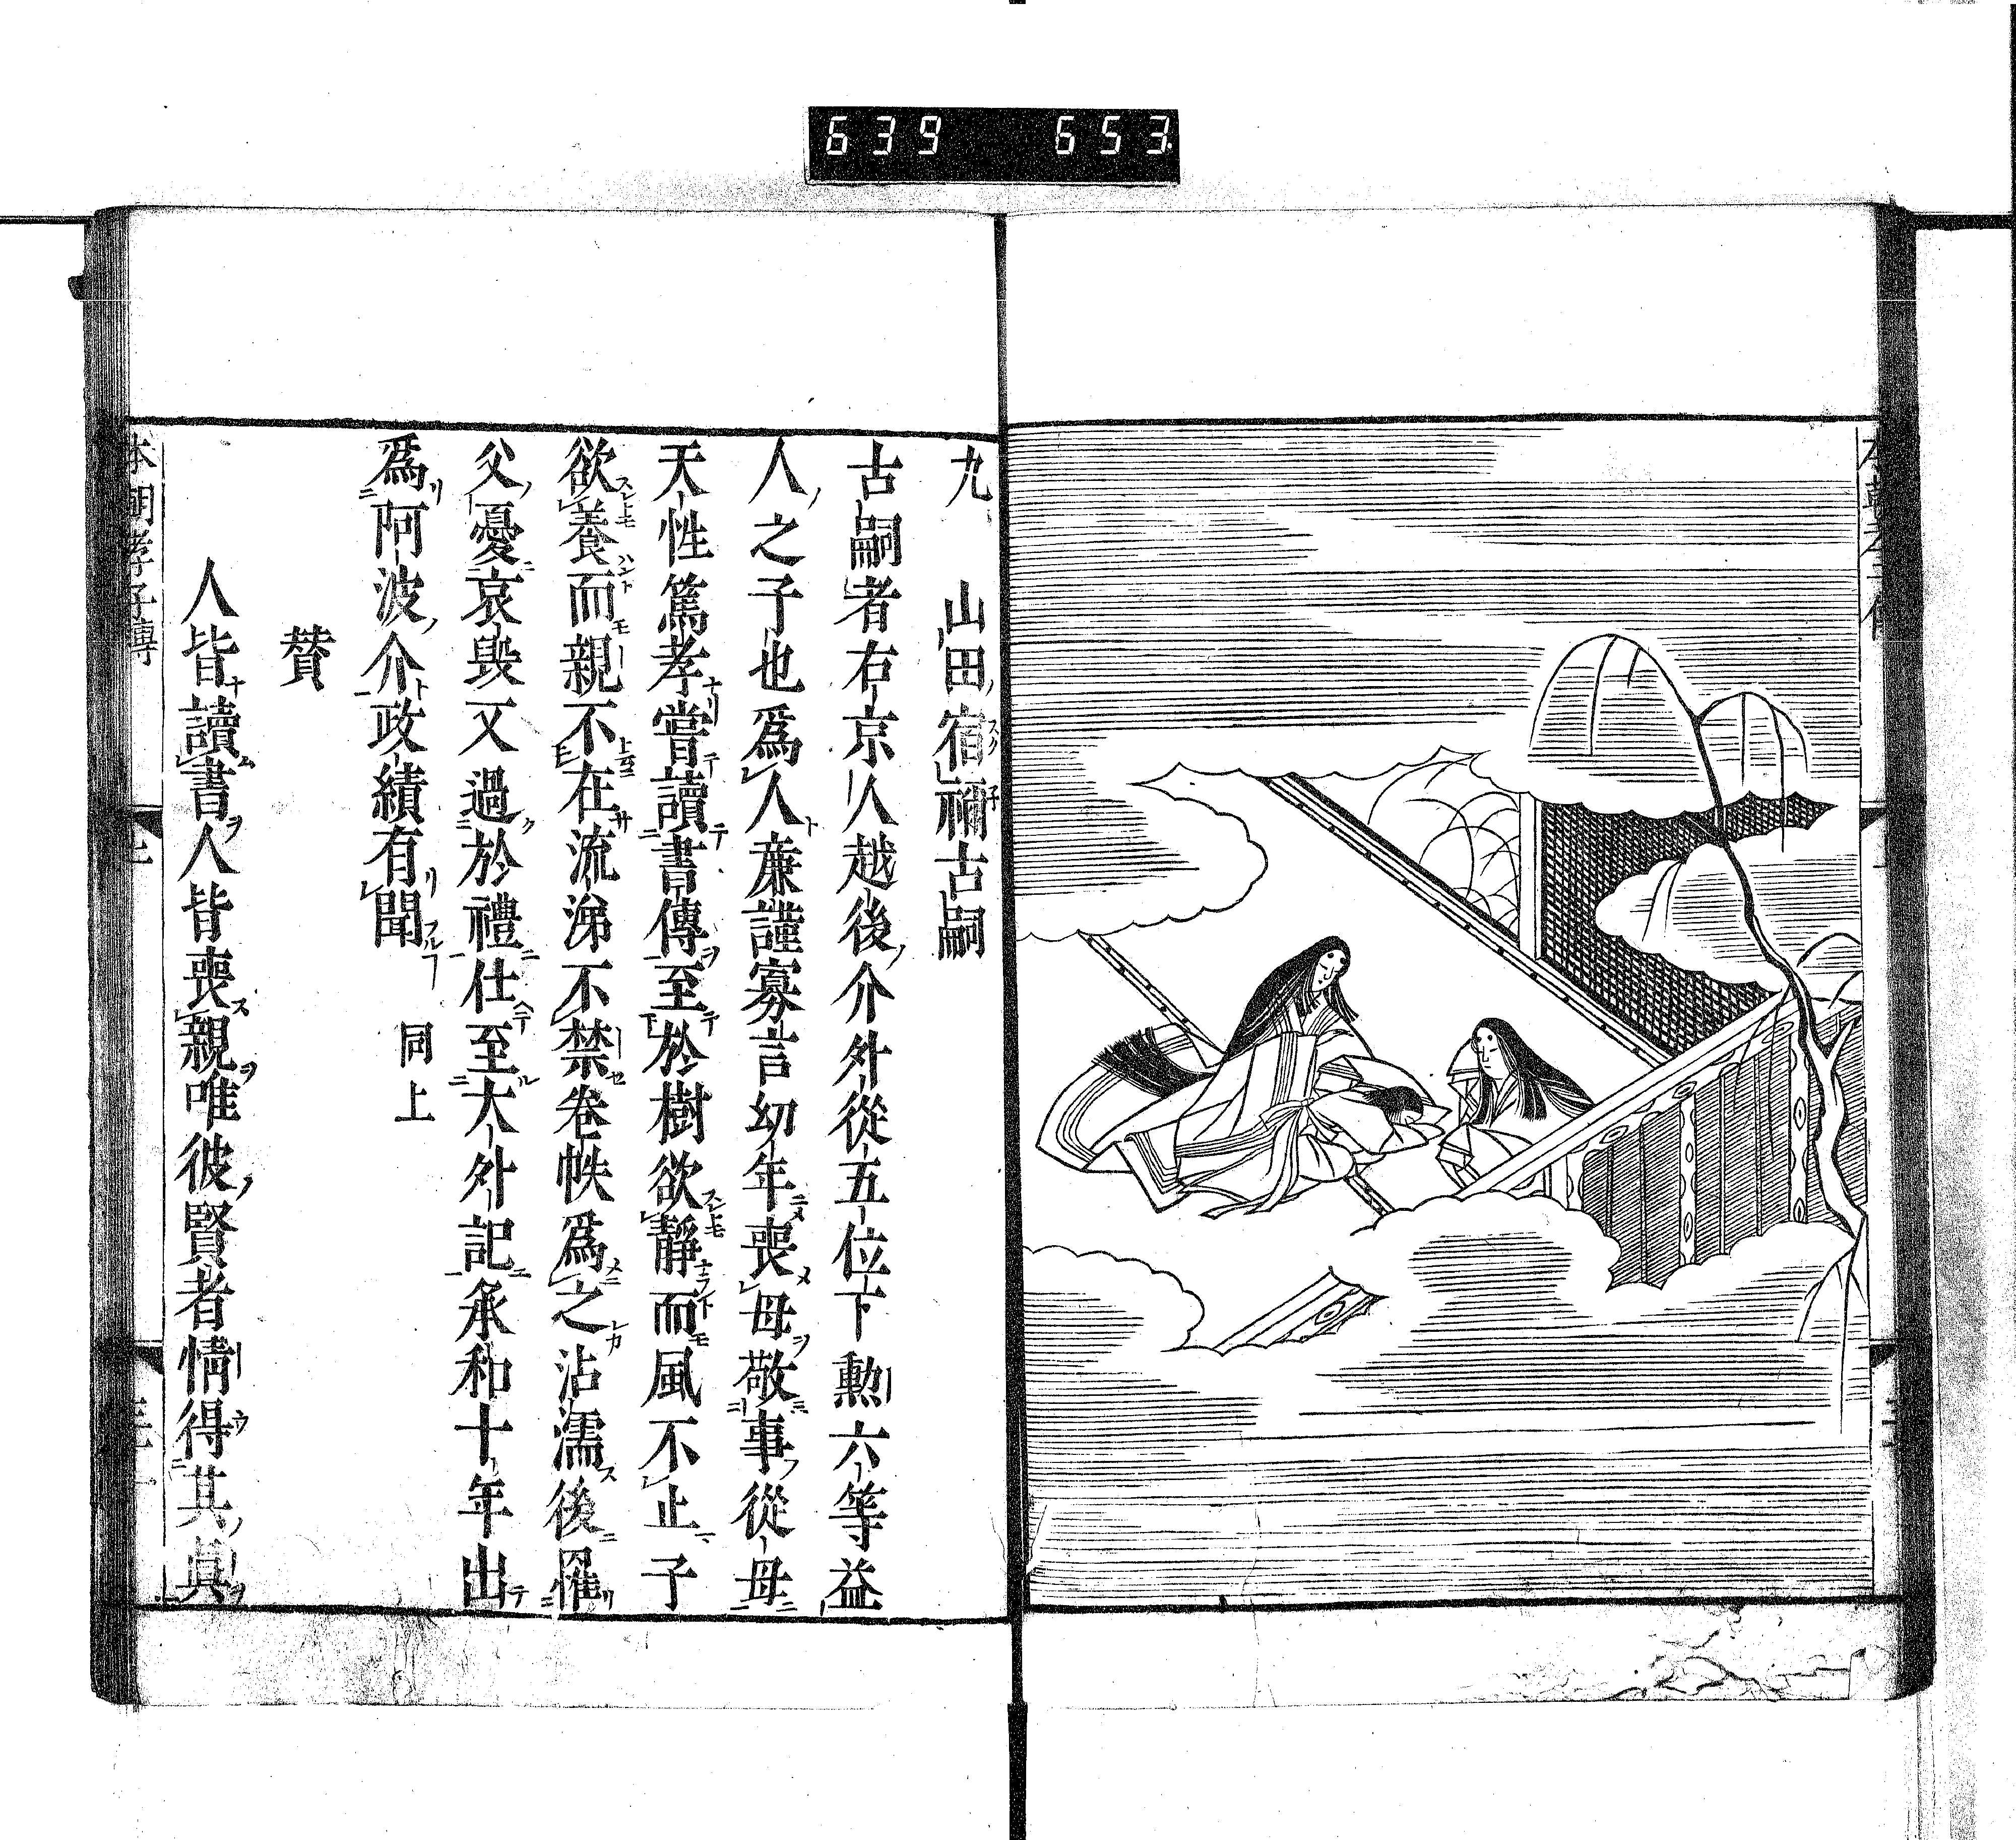 639 653
九 山田宿禰古嗣
古嗣者右京人越後介外從五位下勲六等益
人之子也爲人廉謹寡言幼年喪母敬事從母
天性篤孝嘗讀書傳至於樹欲靜而風不止子
欲養而親不在流涕不禁卷帙爲之沾濡後罹
父憂哀毀又過於禮仕至大外記承和十年出
爲阿波介政績有聞 同上
賛
人皆讀書人皆喪親唯彼賢者情得其眞
本朝孝子傳